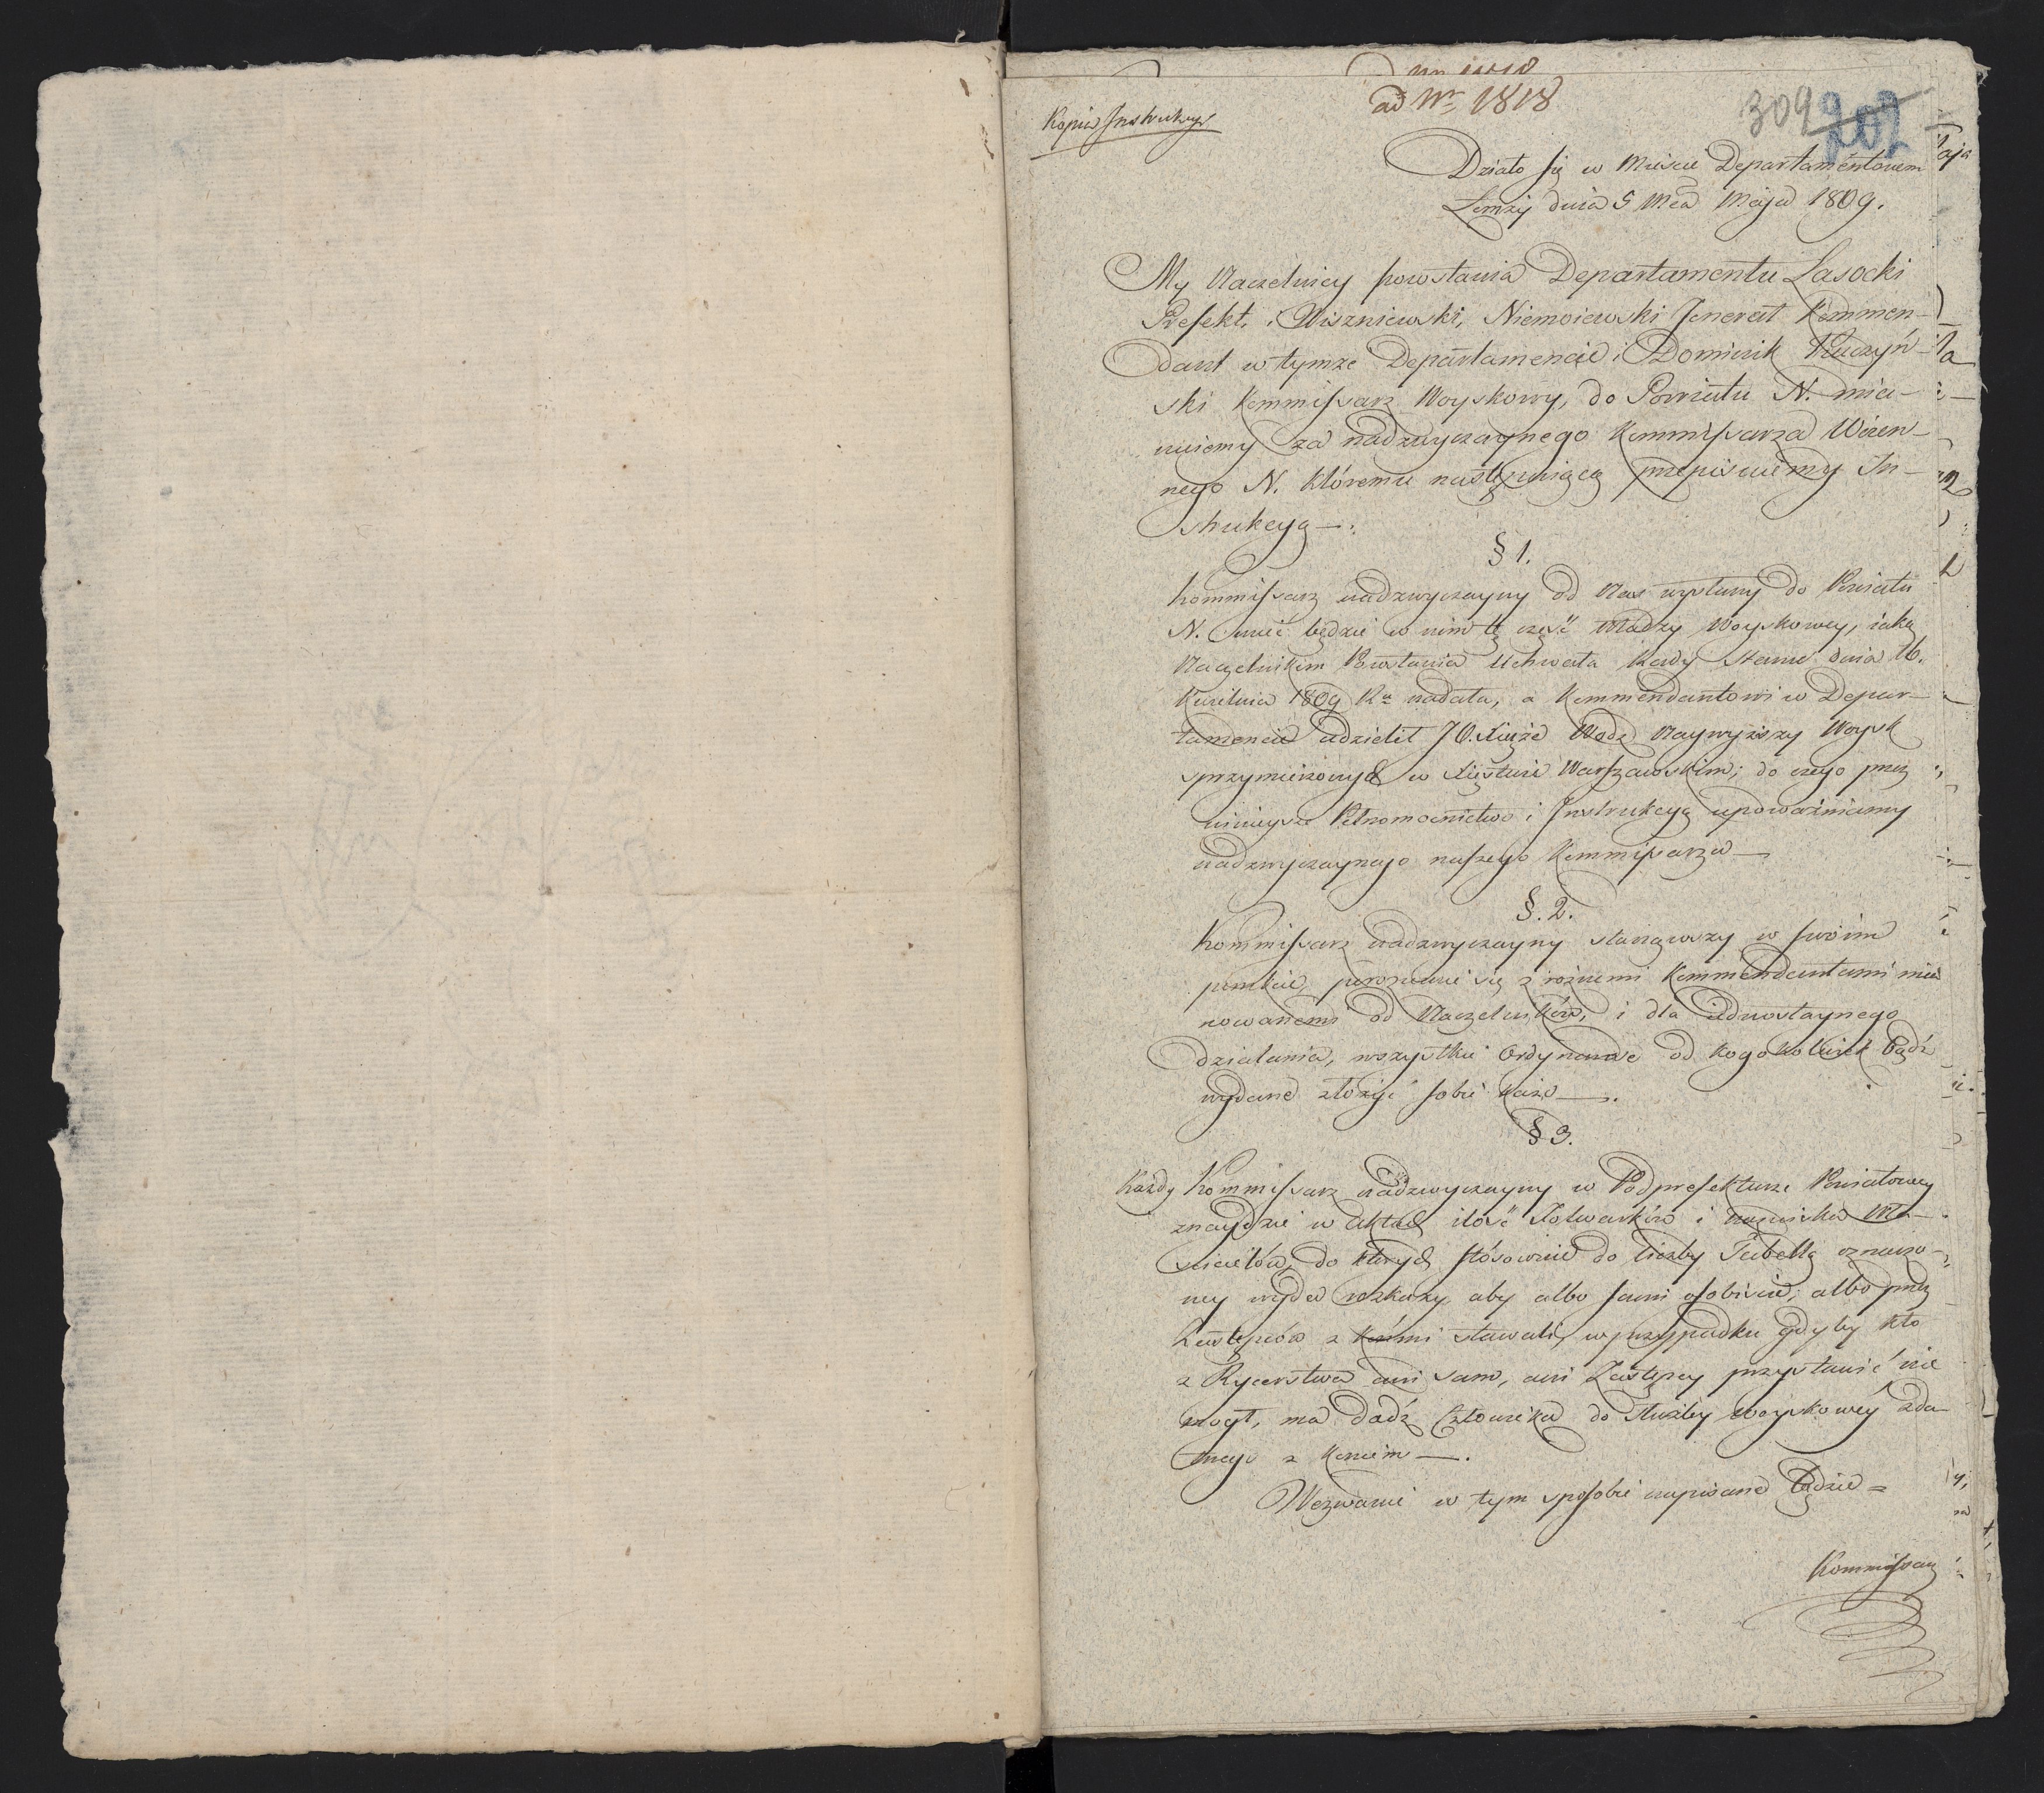 ad Nr 1818
309
202
Kopia Instrukcyi
Działo się w Mieście Departamentowem
Łomży dnia 5 Mca Maja 1809.
My Naczelnicy powstania Departamentu Lasocki
Prefekt, i Wiszniewski, Niemoiewski Jenerał Kommen-
dant w tymże Departamencie i Dominik Kuczyń-
ski Kommissarz Woyskowy, do Powiatu N. mia-
nuiemy za nadzwyczaynego Kommissarza
nego N. któremu następuiącą przepisuiemy In-
strukcyą —:
§ 1.
Kommissarz nadzwyczayny od Nas wysłany do Powiatu
N. mieć będzie w nim tę część Władzy Woyskowey, iaką
Naczelnikom Powstania Uchwała Rady Stanu dnia 16.
Kwietnia 1809 Ru nadała, a Kommendantowi w Depar-
tamencie udzielił JO. Xiąże Wodz Naywyższy Woysk
sprzymierzonych w Xięstwie Warszawskim; do czego przez
ninieysze Pełnomocnictwo i Instrukcyą upoważniamy
nadzwyczaynego naszego Kommissarza —
§. 2.
Kommissarz nadzwyczayny stanąwszy w swóim
punkcie, porozumie się z rożnemi Kommendantami mia
nowanemi od Naczelników, i dla iednostaynego
działania, wszystkie Ordynanse od kogo kolwiek bądź
wydane złożyć sobie każe —.
§ 3.
Każdy Kommissarz nadzwyczayny w Podprefekturze Powiatowey
znaydzie w Aktach ilość Folwarków i nazwiska Wła-
ścicielów, do których stósownie do liczby Tabellą oznaczo-
ney wyda rozkazy, aby albo sami osobiście, albo przez
Zastępców z końmi stawali, w przypadku gdyby kto
z Rycerstwa ani sam, ani Zastępcy przystawić nie
mogł, ma dadź Człowieka do służby Woyskowéy zda-
tnego z koniem —.
Wezwanie w tym sposobie napisane będzie =
Kommissarz